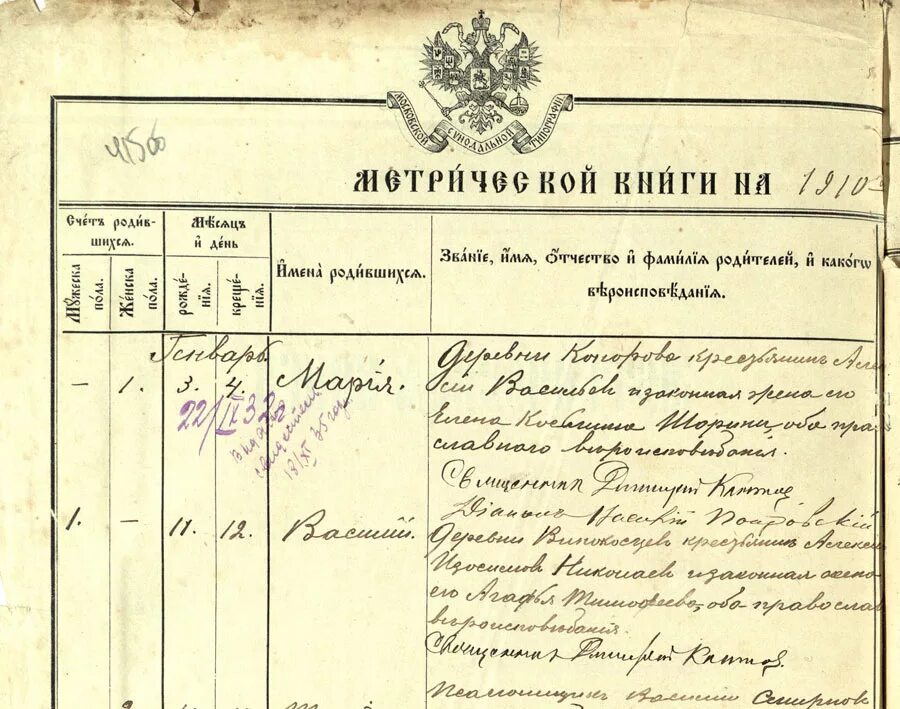 МОСКОВСКОЙ СѴНОДАЛЬНОЙ ТИПОГРАФІИ
4156
МЕТРИ́ЧЕСКОЙ КНИ́ГИ НА 1910
Сче́тъ роди́в-
шихся.
Мѣ́сяцъ
и҆ де́нь
И҆мена̀ роди́вшихся.
Зва́ніе, и҆́мя, ѻ҆́тчество и҆ фами́лія роди́телей, и҆ како́гѡ
вѣроисповѣ́данія.
Мꙋ́жеска
по́ла.
Же́нска
по́ла.
рожде́-
нія.
креще́-
нія.
Генварь
– 1. 3. 4. Марія.
Деревни Кокорова крестьянинъ Алек
сій Васильевъ и законная жена его
Елена Косьмина Шорины, оба пра-
славнаго вѣроисповѣданія.
22/IX 32г
13/XI 35 год
Священникъ Димитрій
Діаконъ Покровскій
1. – 11. 12. Василій.
Деревни крестьянинъ Алексій
Николаевъ и законная жена
его Агафья Тимофеева, оба православ
вѣроисповѣданія.
Священникъ Димитрій
Псаломщикъ Василій Смирновъ